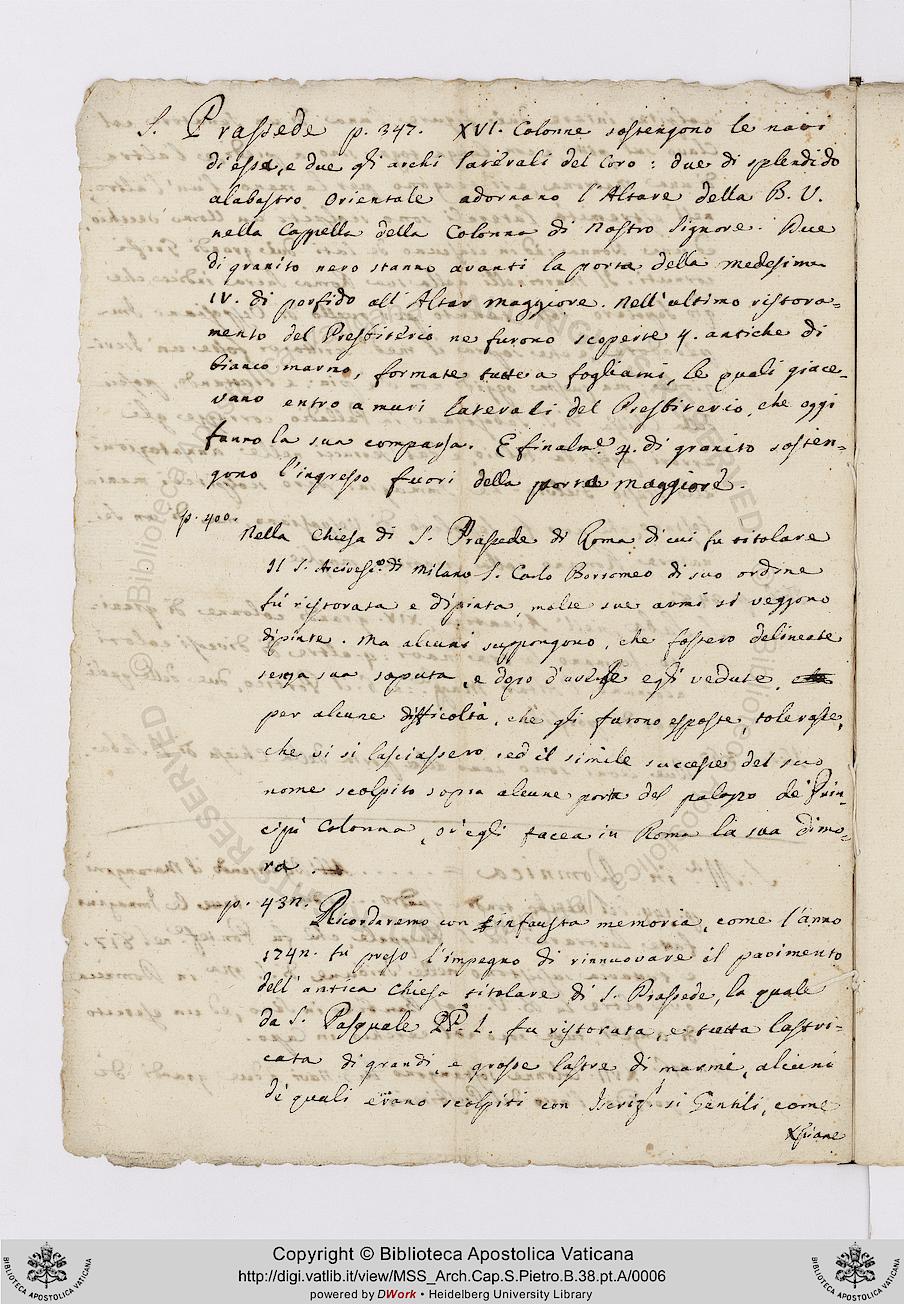 S. Prassede p. 347. XVI. Colonne sostengono le navi
di essa, e due gli archi laterali del Coro: due di splendido
alabastro Orientale adornano l'Altare della B. V.
nella Cappella della Colonna di Nostro Signore. Due
di granito nero stanno avanti la porta della medesima
IV. di porfido all'Altar maggiore. Nell'ultimo ristora=
mento del Presbiterio ne furono scoperte 4. antiche di
bianco marmo, formate tutte a fogliami, le quali giace-
vano entro a muri laterali del Presbiterio, che oggi
fanno la sua comparsa. E finalm.e 4. di granito sosten=
gono l'ingresso fuori della porta maggiore.
p. 400.
Nella Chiesa di S. Prassede di Roma di cui fu titolare
Il S. Arcivesc.o di Milano S. Carlo Borromeo di suo ordine
fù ristorata e dipinta, molte sue armi si veggono
dipinte. Ma alcuni suppongono, che fossero delineate
senza sua saputa, e dopo d'averle egli vedute,
per alcune difficoltà, che gli furono esposte, tolerasse,
che vi si lasciassero, ed il simile succese del suo
nome scolpito sopra alcune porte del palazzo de' Prin-
cipi Colonna, ov'egli facea in Roma la sua dimo-
ra.
p. 43n.
Ricordaremo con infausta memoria, come l'anno
174n. fu preso l'impegno di rinnuovare il pavimento
dell'antica Chiesa titolare di S. Prassede, la quale
da S. Pasquale PP. I. fu ristorata, e tutta lastri-
cata di grandi, e grosse lastre di marmi, alcuni
de' quali erano scolpiti con Iscriz. si Gentili, come
Xpiane
Copyright © Biblioteca Apostolica Vaticana
http://digi.vatlib.it/view/MSS_Arch.Cap.S.Pietro.B.38.pt.A/0006
powered by DWork • Heidelberg University Library
BIBLIOTECA APOSTOLICA VATICANA
BIBLIOTECA APOSTOLICA VATICANA